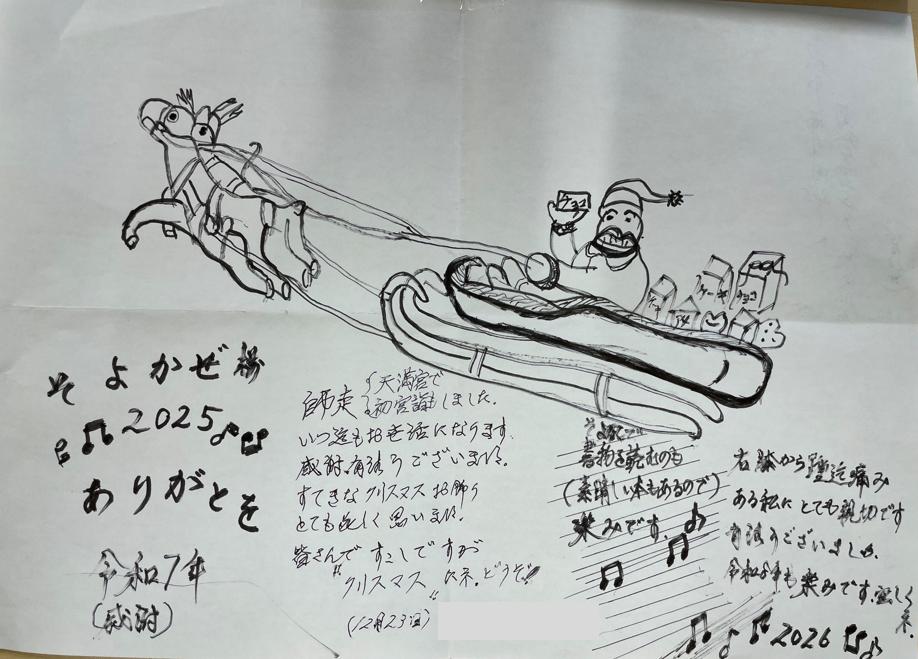 チョコ
ケーキ
チョコ
アメ
そよかぜ様
2025
ありがとを
令和7年
(感謝)
師走
天満宮で
初宮詣もしました。
いつ迄もお世話になります。
感謝有難うございます。
すてきなクリスマスお飾り
とても嬉しく思います。
皆さんで すこしですが
"クリスマス"
どうぞ!
(12月23日)
書物を読むのも
(素晴しい本もあるので)
楽みです。
右膝から踵迄痛み
ある私にとても親切です
有難うございました。
令和8年も楽みです。宜しく
2026